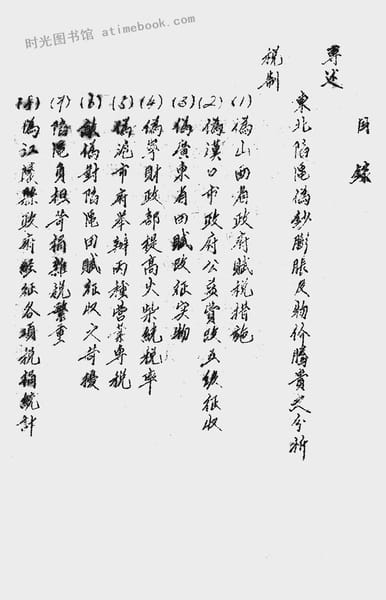 时光图书馆 atimebook.com
目錄
專述
東北陷區偽鈔膨脹及物价騰貴之分析
税制
(1)偽山西省政府賦税措施
(2)偽漢口市政府公益賞改五級征收
(3)偽廣東省田賦改征实物
(4)偽寧財政部提高火柴統税率
(5)偽滬市府举辦两種营業專税
(6)敵偽對陷區田賦征收之苛擾
(7)陷區負担苛捐雜税繁重
(8)偽江陰縣政府經征各項税捐統計